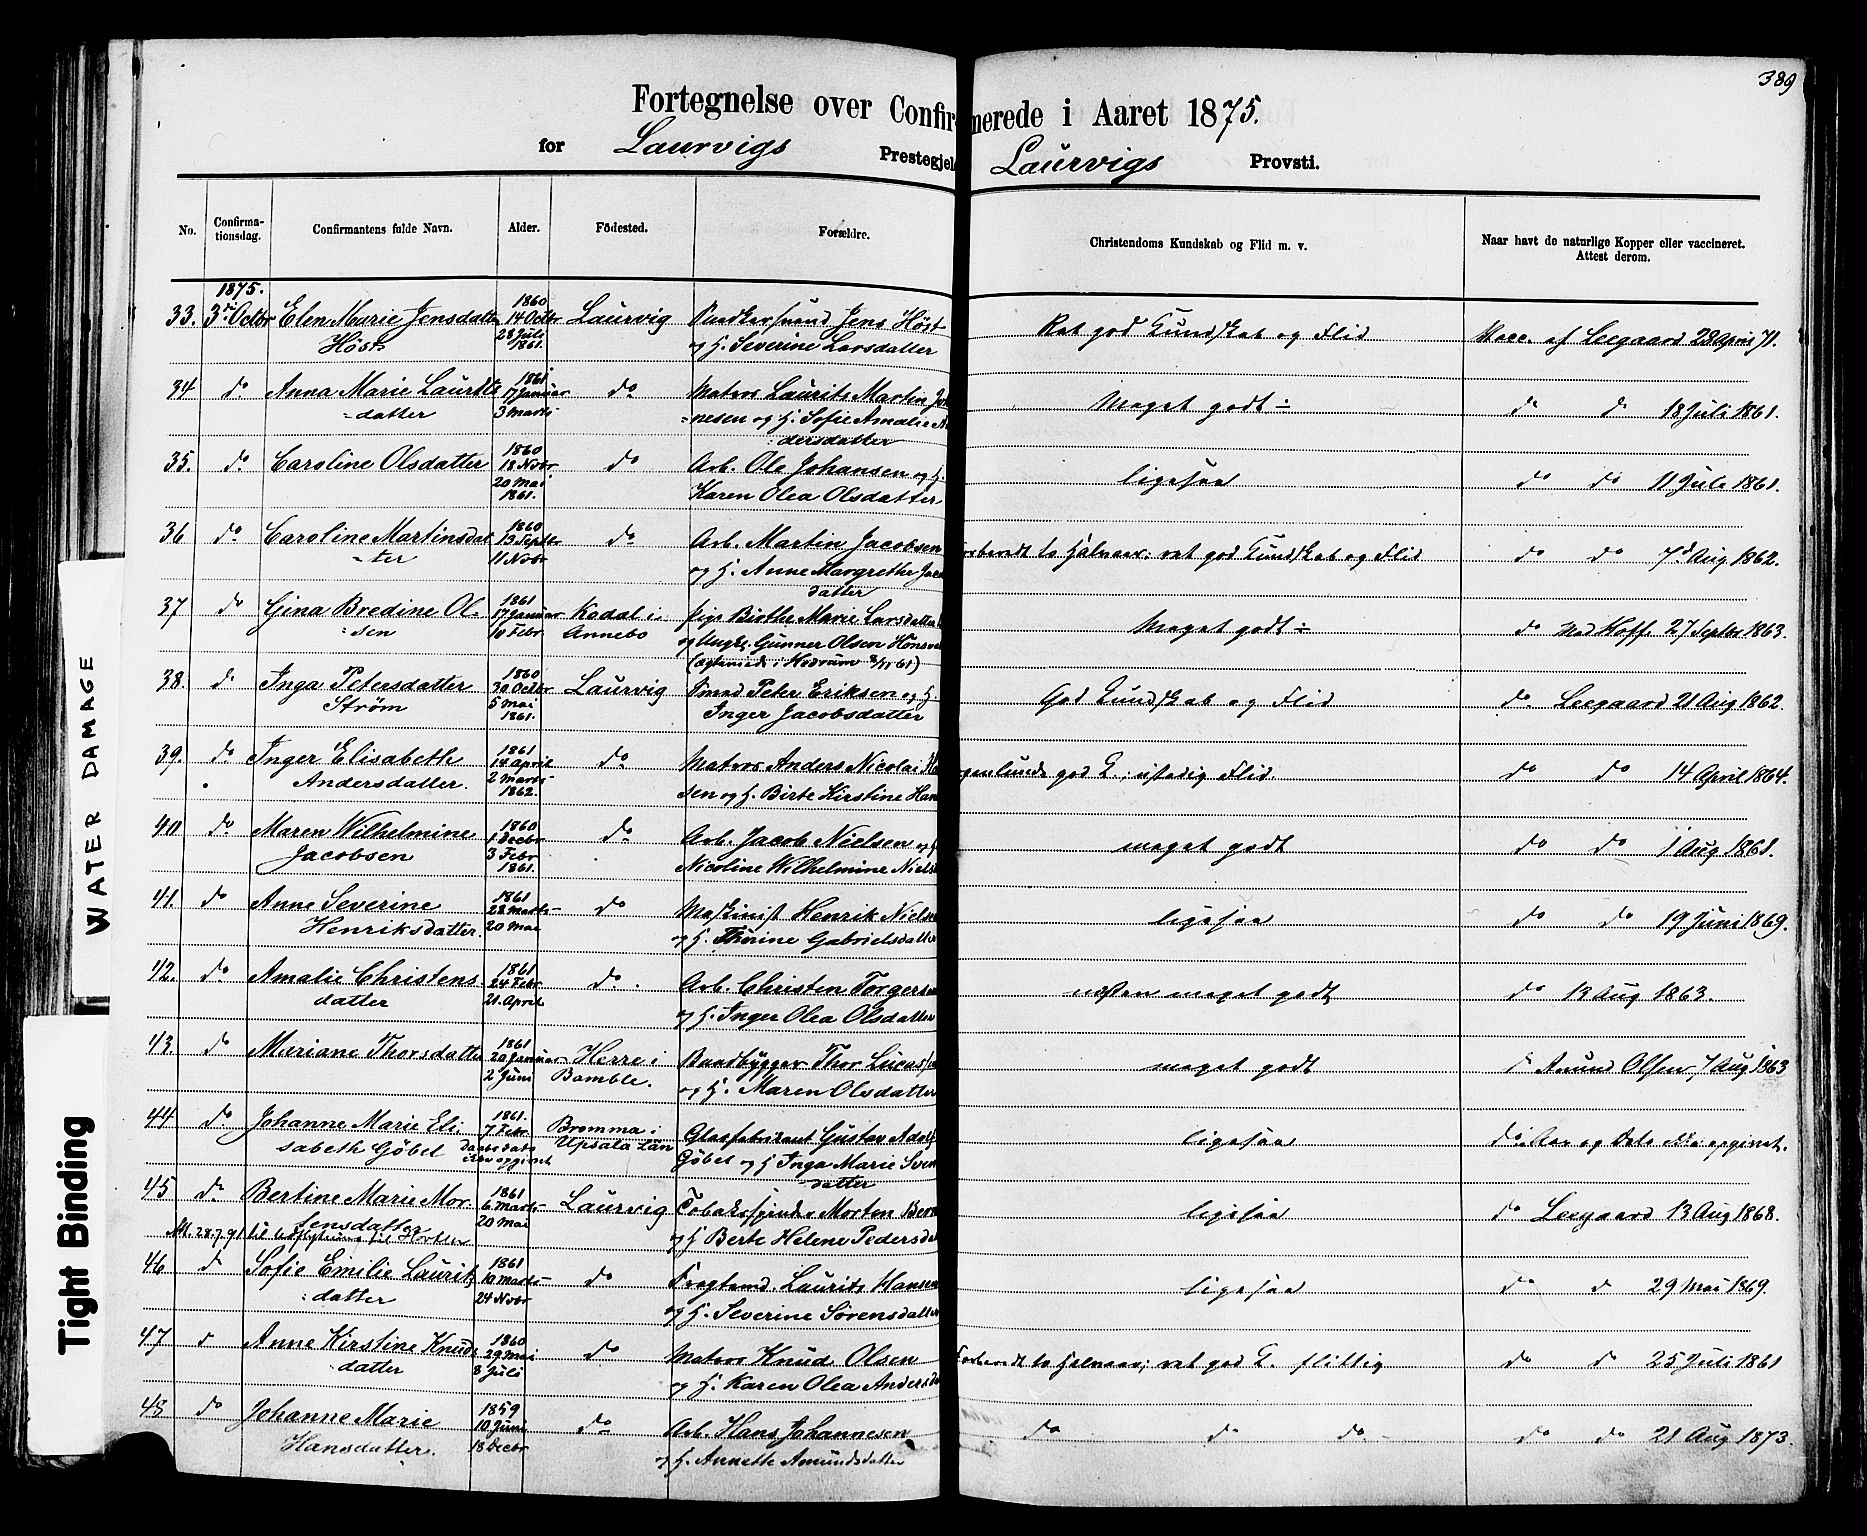 389
Fortegnelse over Confirmerede i Aaret 1875.
for Laurvigs Prestegjeld Laurvigs Provsti.
No. Confirmationsdag. Confirmantens fulde Navn. Alder. Födested. Forældre. Christendoms Kundskab og Flid m. v. Naar havt de naturlige Kopper eller vaccineret. Attest derom.
1875.
33. 3die Octbr Elen Marie Jensdatter 1860 14 Octbr Laurvig Jens Höst Ret god Kundskab og Flid Vacc. af Leegaard 28 April 71.
Höst 28 Juli 1861. og H. Severine Larsdatter
34 do Anna Marie Laurits 1861 17 Januar do Matros Laurits Martin Joh Meget godt do do 18 Juli 1861.
=datter 3 Marts =nesen og H. Sofie Amalie An
dersdatter
35. do Caroline Olsdatter 1860 18 Novbr do Arb. Ole Johansen og H. ligesaa do do 11 Juli 1861.
20 Mai 1861. Karen Olea Olsdatter
36 do Caroline Martinsdat 1860 13 Septbr do Arb. Martin Jacobsen ret god Kundskab og Flid do do 7d Aug 1862.
=ter 11 Novbr og H. Anne Margrethe Jacobs
datter
37 do Gina Bredine Ol= 1861 17 Januar Kodal i Pige Birthe Marie Larsdatter Meget godt do Mad Hoff 27 Septbr 1863.
=sen 10 Febr. Annebo og Ungk. Gunner Olsen
(ægteviede i Hedrum 61)
38. do Inga Petersdatter 1860 30 Octbr Laurvig Smed Peter Eriksen og H. God Kundskab og Flid do Leegaard 21 Aug 1862.
Ström 5 Mai 1861. Inger Jacobsdatter
39. do Inger Elisabeth 1861 14 April do Matros Anders Nicolai god K.; ustadig Flid. do do 14 April 1864.
Andersdatter. 2 Marts 1862. sen og H. Birte Kirstine Han
40 do Maren Wilhelmine 1860 1 Decbr do Arb. Jacob Nielsen og H meget godt do do 1 Aug 1861.
Jacobsen 3 Febr 1861. Nicoline Wilhelmine Niels
41. do Anne Severine 1861 28 Marts do Maskinist Henrik Nielsen ligesaa do do 19 Juni 1869.
Henriksdatter. 20 Mai og H. Thrine Gabrielsdatter
42. do Amalie Christens 1861 24 Febr. do Arb. Christen Torgersen næsten meget godt do 13 Aug 1863.
datter 21 April og H. Inger Olea Olsdatter
43. do Mariane Thorsdatter 1861 20 Januar Herre i Baadbygger Thor Lucassen meget godt do Amund Olsen 7 Aug 1863
2 Juni Bamble. og H. Maren Olsdatter
44 do Johanne Marie Eli 1861. 7 Febr Bromma i Glasfabrikant Gustav Adolf ligesaa do Aar og Dato ikke opgivet.
sabeth Göbel Daabsdato ikke opgivet Upsala Län Göbel og H Inga Marie Sven
datter
45 do Bertine Marie Mor 1861 6 Marts Laurvig Tobakspinder Morten Bern ligesaa do Leegaard 13 Aug 1868.
tensdatter 20 Mai og H Berte Helene Pedersdat
Att. 28.7.91 til Udflytning til Horten
46 do Sofie Emilie Laurits 1861 10 Marts do Laurits Hansen ligesaa do do 29 Mai 1869.
datter 24 Novbr og H. Severine Sörensdatter
47 do Anne Kirstine Knuds 1860 29 Mai do Matros Knud Olsen ret god K. flittig do do 25 Juli 1861
datter 8 Juli og H. Karen Olea Andersd
48 do Johanne Marie 1859 10 Juni do Arb. Hans Johannesen do do do do do 21 Aug 1873.
Hansdatter. 18 Decbr og H. Annette Amundsdatter
WATER DAMAGE
Tight Binding